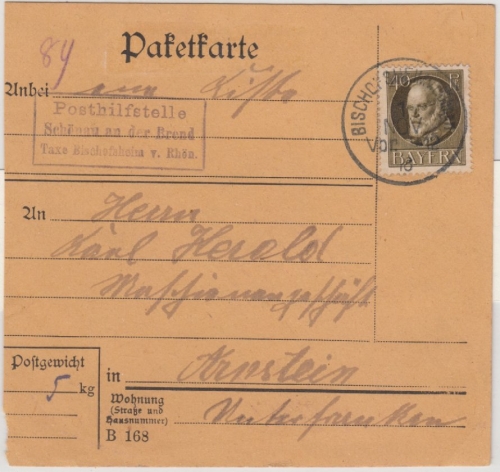 Paketkarte
84
Anbei eine Kiste
Posthilfstelle
Schönau an der Brend
Taxe Bischofsheim v. Rhön.
40 Pf
BAYERN
BISCHOF
N
Vor
An Herrn
Karl Herold
Maschinengeschäft
Postgewicht
5 kg
in Arnstein
Wohnung
(Straße und
Hausnummer)
Unterfranken
B 168